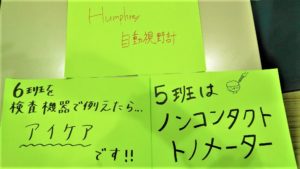 Humphrey
自動視野計
6班を
検査機器で例えたら...
アイケア
です!!
5班は
ノンコンタクト
トノメーター